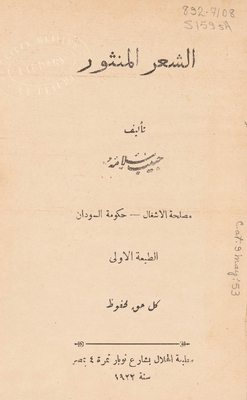 892-7108
S159sA
الشعر المنثور
تأليف
حبيب سلامه
مصلحة الاشغال — حكومة السودان
الطبعة الاولى
كل حق محفوظ
مطبعة الهلال بشارع نوبار نمرة ٤ بمصر
سنة ١٩٢٢
Cat. 9 may. '53